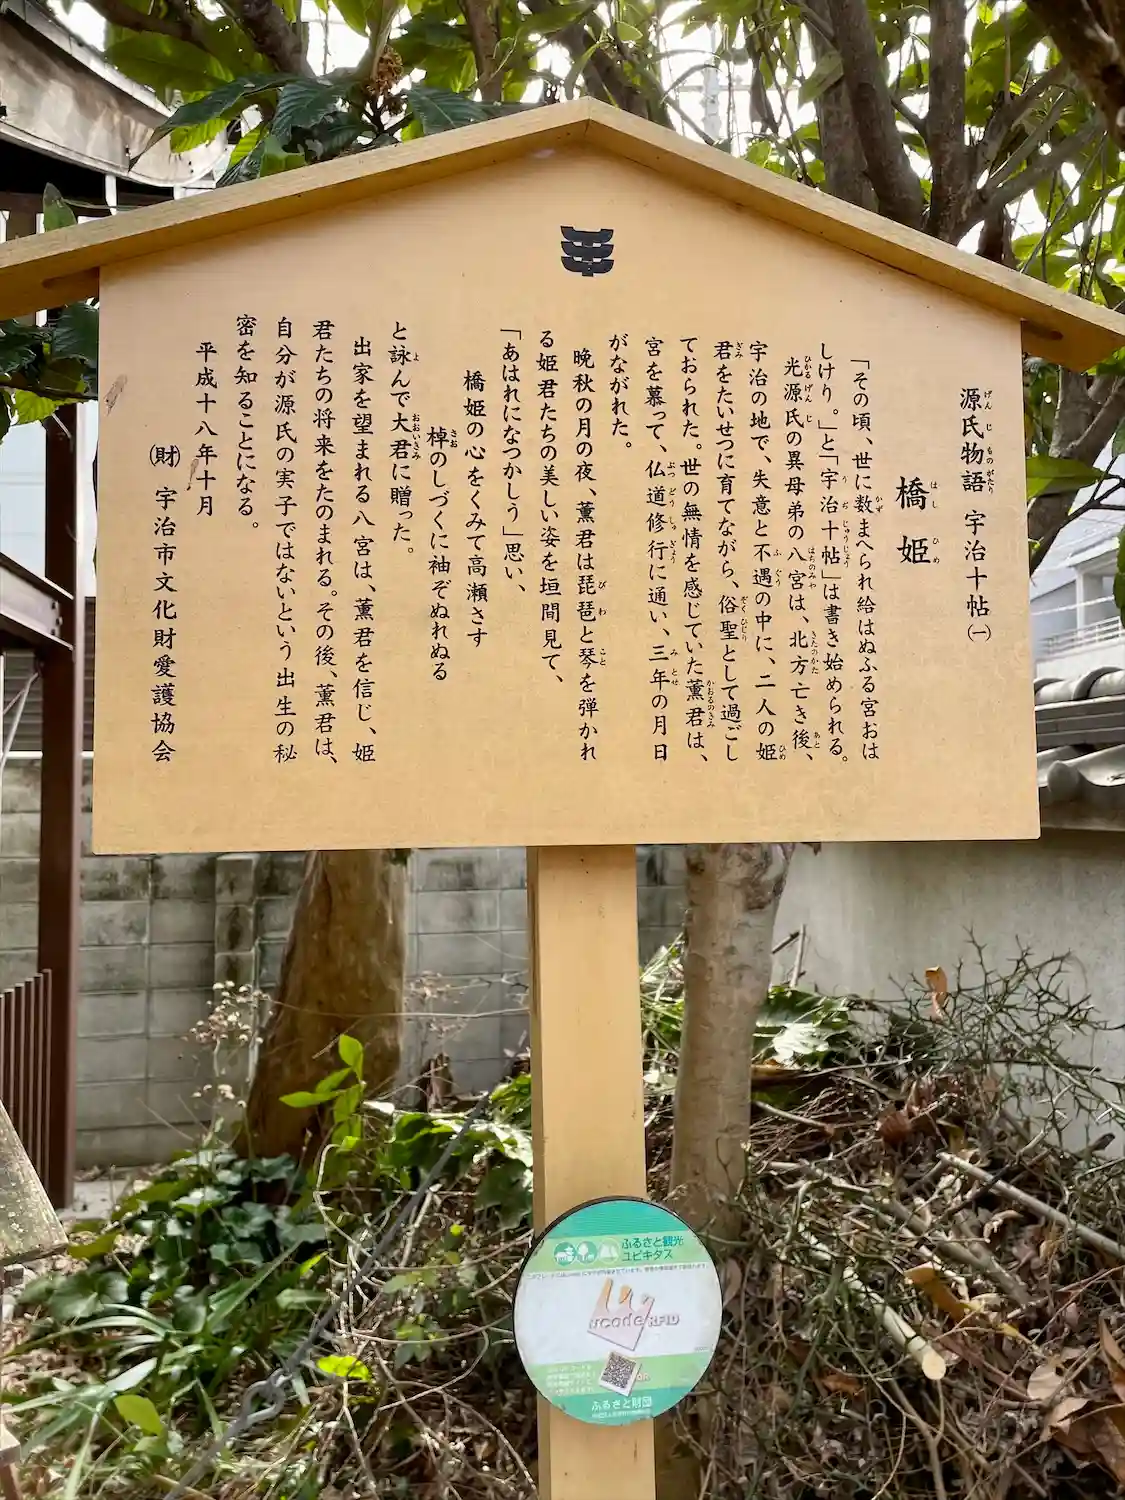 源氏物語 宇治十帖㈠
橋姫
「その頃、世に数まへられ給はぬふる宮おは
しけり。」と「宇治十帖」は書き始められる。
光源氏の異母弟の八宮は、北方亡き後、
宇治の地で、失意と不遇の中に、二人の姫
君をたいせつに育てながら、俗聖として過ごし
ておられた。世の無情を感じていた薫君は、
宮を慕って、仏道修行に通い、三年の月日
がながれた。
晩秋の月の夜、薫君は琵琶と琴を弾かれ
る姫君たちの美しい姿を垣間見て、
「あはれになつかしう」思い、
橋姫の心をくみて高瀬さす
棹のしづくに袖ぞぬれぬる
と詠んで大君に贈った。
出家を望まれる八宮は、薫君を信じ、姫
君たちの将来をたのまれる。その後、薫君は、
自分が源氏の実子ではないという出生の秘
密を知ることになる。
平成十八年十月
(財) 宇治市文化財愛護協会
ふるさと観光
ユビキタス
ucode RFID
QR
ふるさと財団